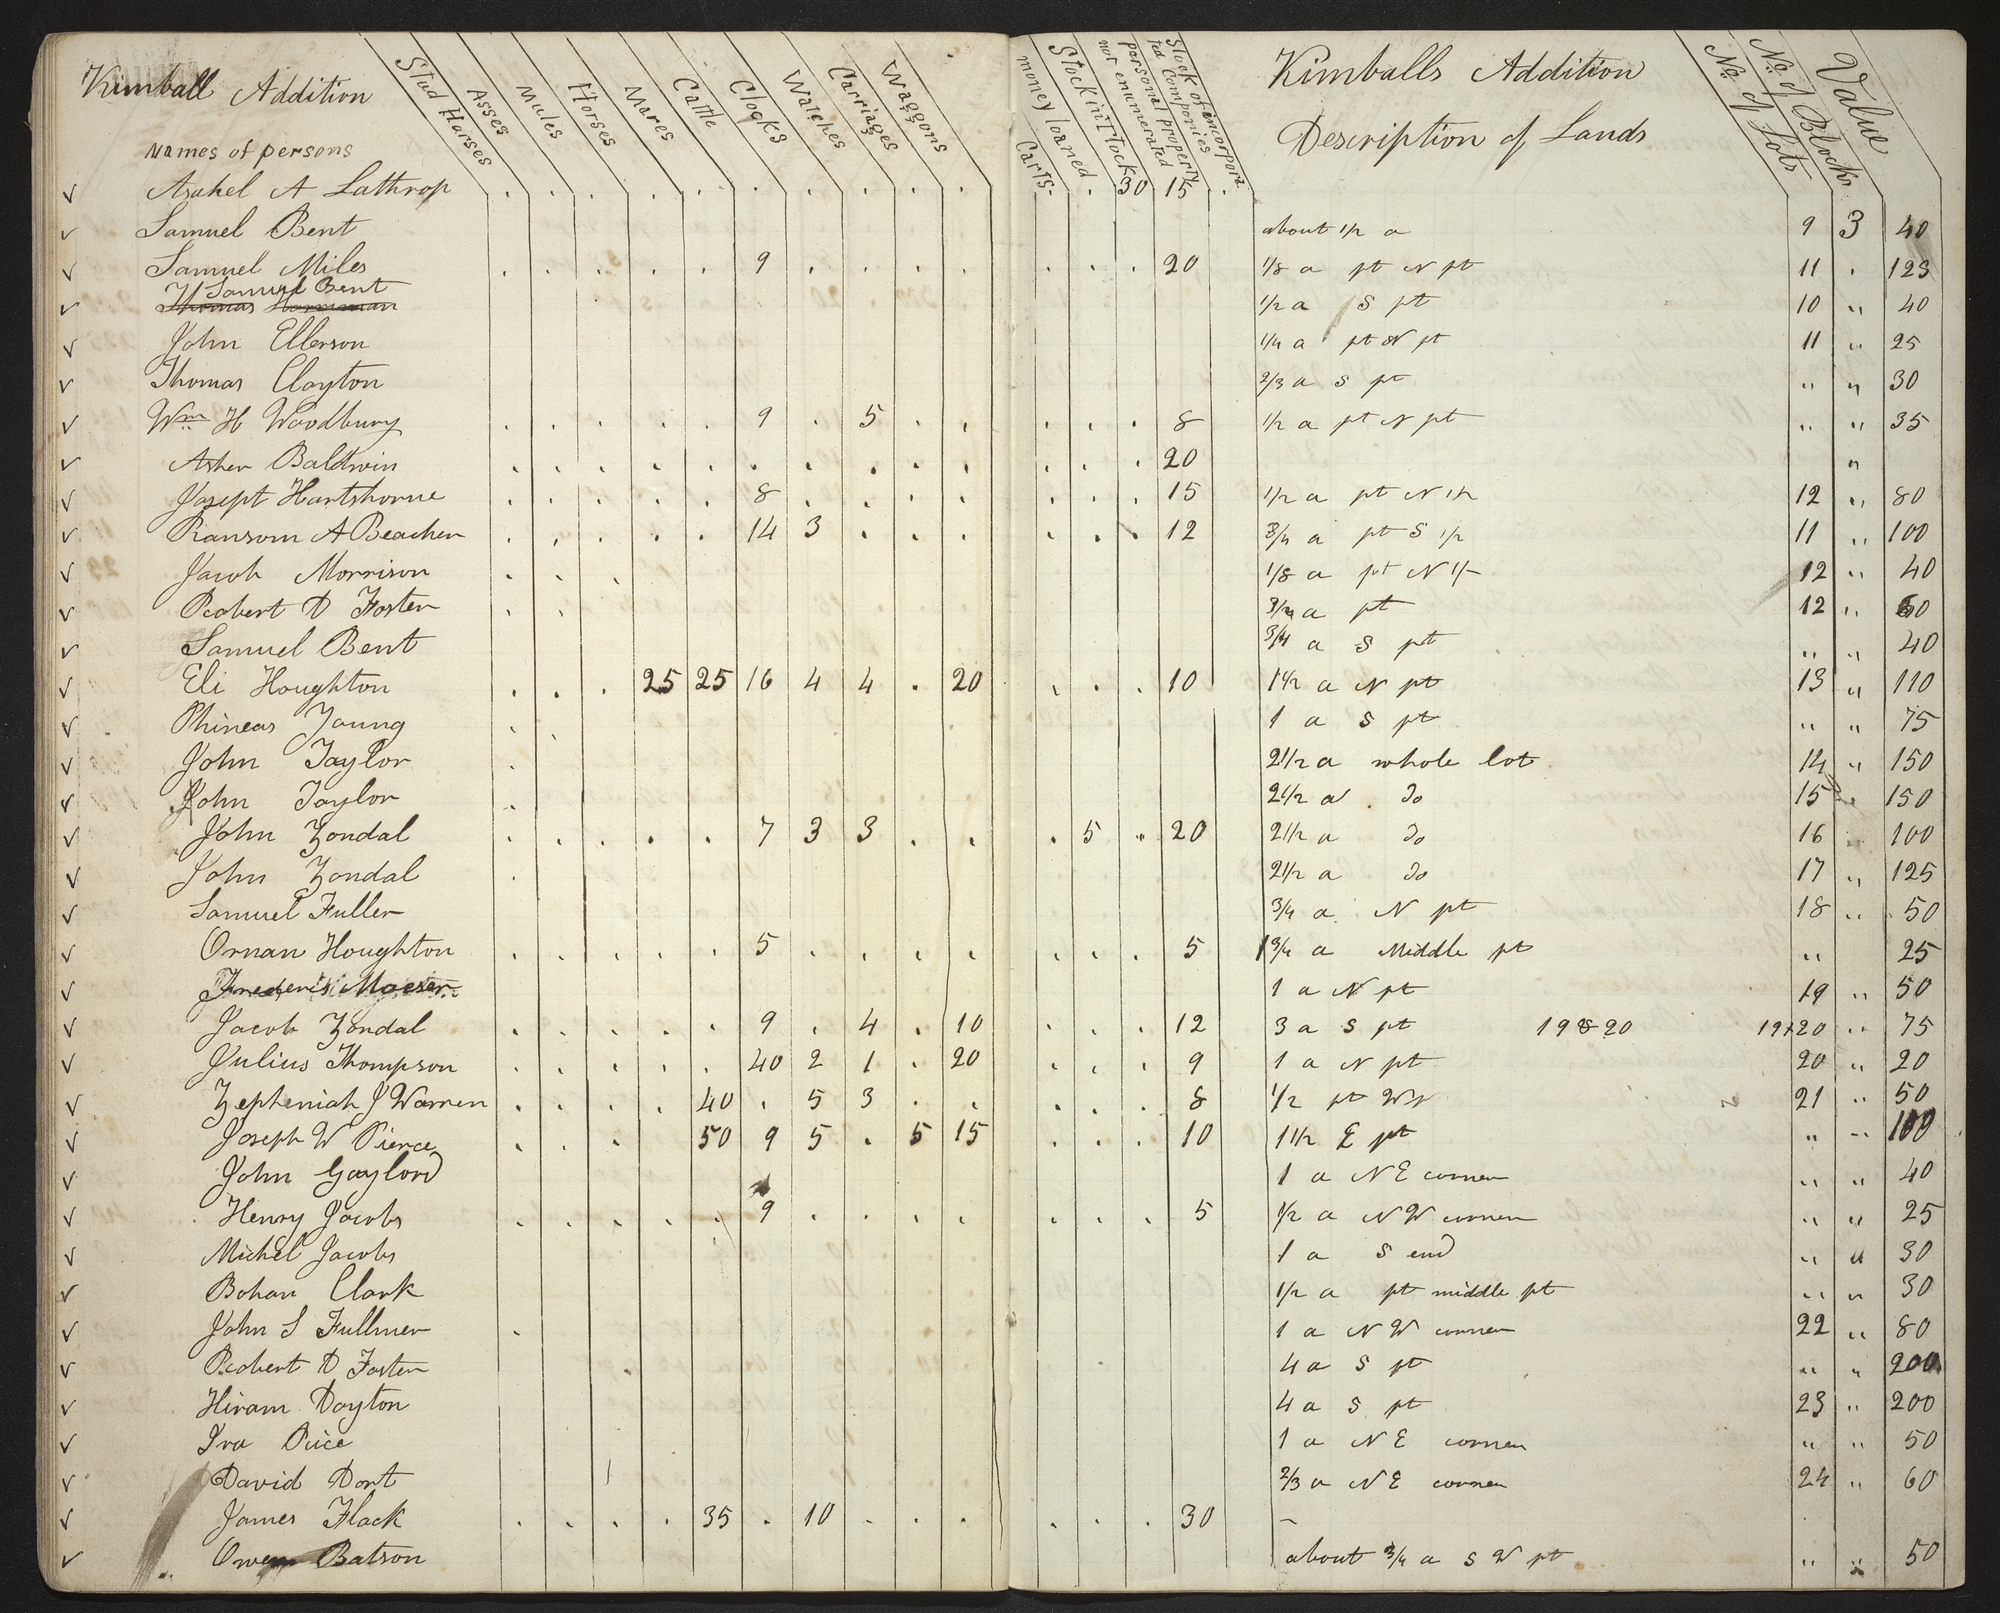 Kimball Addition
Stud Horses
Asses
Mules
Horses
Mares
Cattle
Clocks
Watches
Carriages
Waggons
Carts
money loaned
Stock in Stock
personal property not enumerated
Stock of incorporated Componies
Kimballs Addition
Description of Lands
No. of Lots
No. of Blocks
Value
Names of persons
✓ Asahel A Lathrop . . . . . . . . . . . 30 15 .
✓ Samuel Bent about 1/2 a 9 3 40
✓ Samuel Miles . . . . . 9 . . . . . . . 20 1/8 a pt N pt 11 . 125
Samuel Bent
✓ Thomas Harmman 1/2 a S pt 10 " 40
✓ John Ellerson 1/4 a pt N pt 11 " 25
✓ Thomas Clayton 2/3 a S pt " " 30
✓ Wm H Woodbury . . . . . 9 . 5 . . . . . 8 1/2 a pt N pt " " 35
✓ Asher Baldwin . . . . . . . . . . . . . 20 "
✓ Josept Hartshorne . . . . . 8 . . . . . . . 15 1/2 a pt N 1/2 12 " 80
✓ Ransom A Beacher . . . . . 14 3 . . . . . . 12 3/4 a pt S 1/2 11 " 100
✓ Jacob Morrison . . . 1/8 a pt N 1/- 12 " 40
✓ Robert D Foster . . 3/4 a pt 12 " 60
✓ Samuel Bent 3/4 a S pt " " 40
✓ Eli Houghton . . . 25 25 16 4 4 . 20 . . . 10 1 1/2 a N pt 13 " 110
✓ Phineas Young . . 1 a S pt " " 75
✓ John Taylor . 2 1/2 a whole lot 14 " 150
✓ John Taylor . 2 1/2 a . Do 15 " 150
✓ John Zondal . . . . . 7 3 3 . . . 5 " 20 2 1/2 a Do 16 100
✓ John Zondal . 2 1/2 a Do 17 " 125
✓ Samuel Fuller 3/4 a N pt 18 " 50
✓ Ornan Houghton . . . . . 5 . . . . . . . 5 1 3/4 a Middle pt " 25
✓ Frederic Moeser 1 a N pt 19 " 50
✓ Jacob Zondal . . . . . 9 . 4 . 10 . . . 12 3 a S pt 19 & 20 19+20 " 75
✓ Julius Thompson . . . . . 40 2 1 . 20 . . . 9 1 a N pt 20 " 20
✓ Zepheniah J Warren . . . . 40 . 5 3 . . . . . 8 1/2 pt W 21 " 50
✓ Joseph W Pierce . . . 50 9 5 . 5 15 . . . 10 1 1/2 E pt " " 100
✓ John Gaylord 1 a N E corner " " 40
✓ Henry Jacobs . . . . . 9 . . . . . . . 5 1/2 a N W corner " " 25
✓ Michel Jacobs 1 a S end " " 30
✓ Bohan Clark 1/2 a pt middle pt " " 30
✓ John S Fullmer . 1 a N W corner 22 " 80
✓ Robert D Foster 4 a S pt " " 200
✓ Hiram Dayton 4 a S pt 23 " 200
✓ Ira Price 1 a N E corner " " 50
✓ David Dort 2/3 a N E corner 24 " 60
✓ James Flack . . . . 35 . 10 . . . . . . 30 ~
✓ Owen Batson about 3/4 a S W pt " " 50